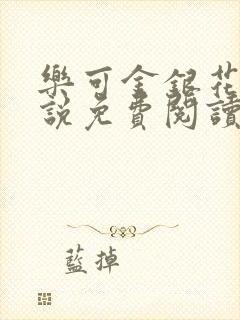 樂可金銀花
說免費閱讀
藍掉